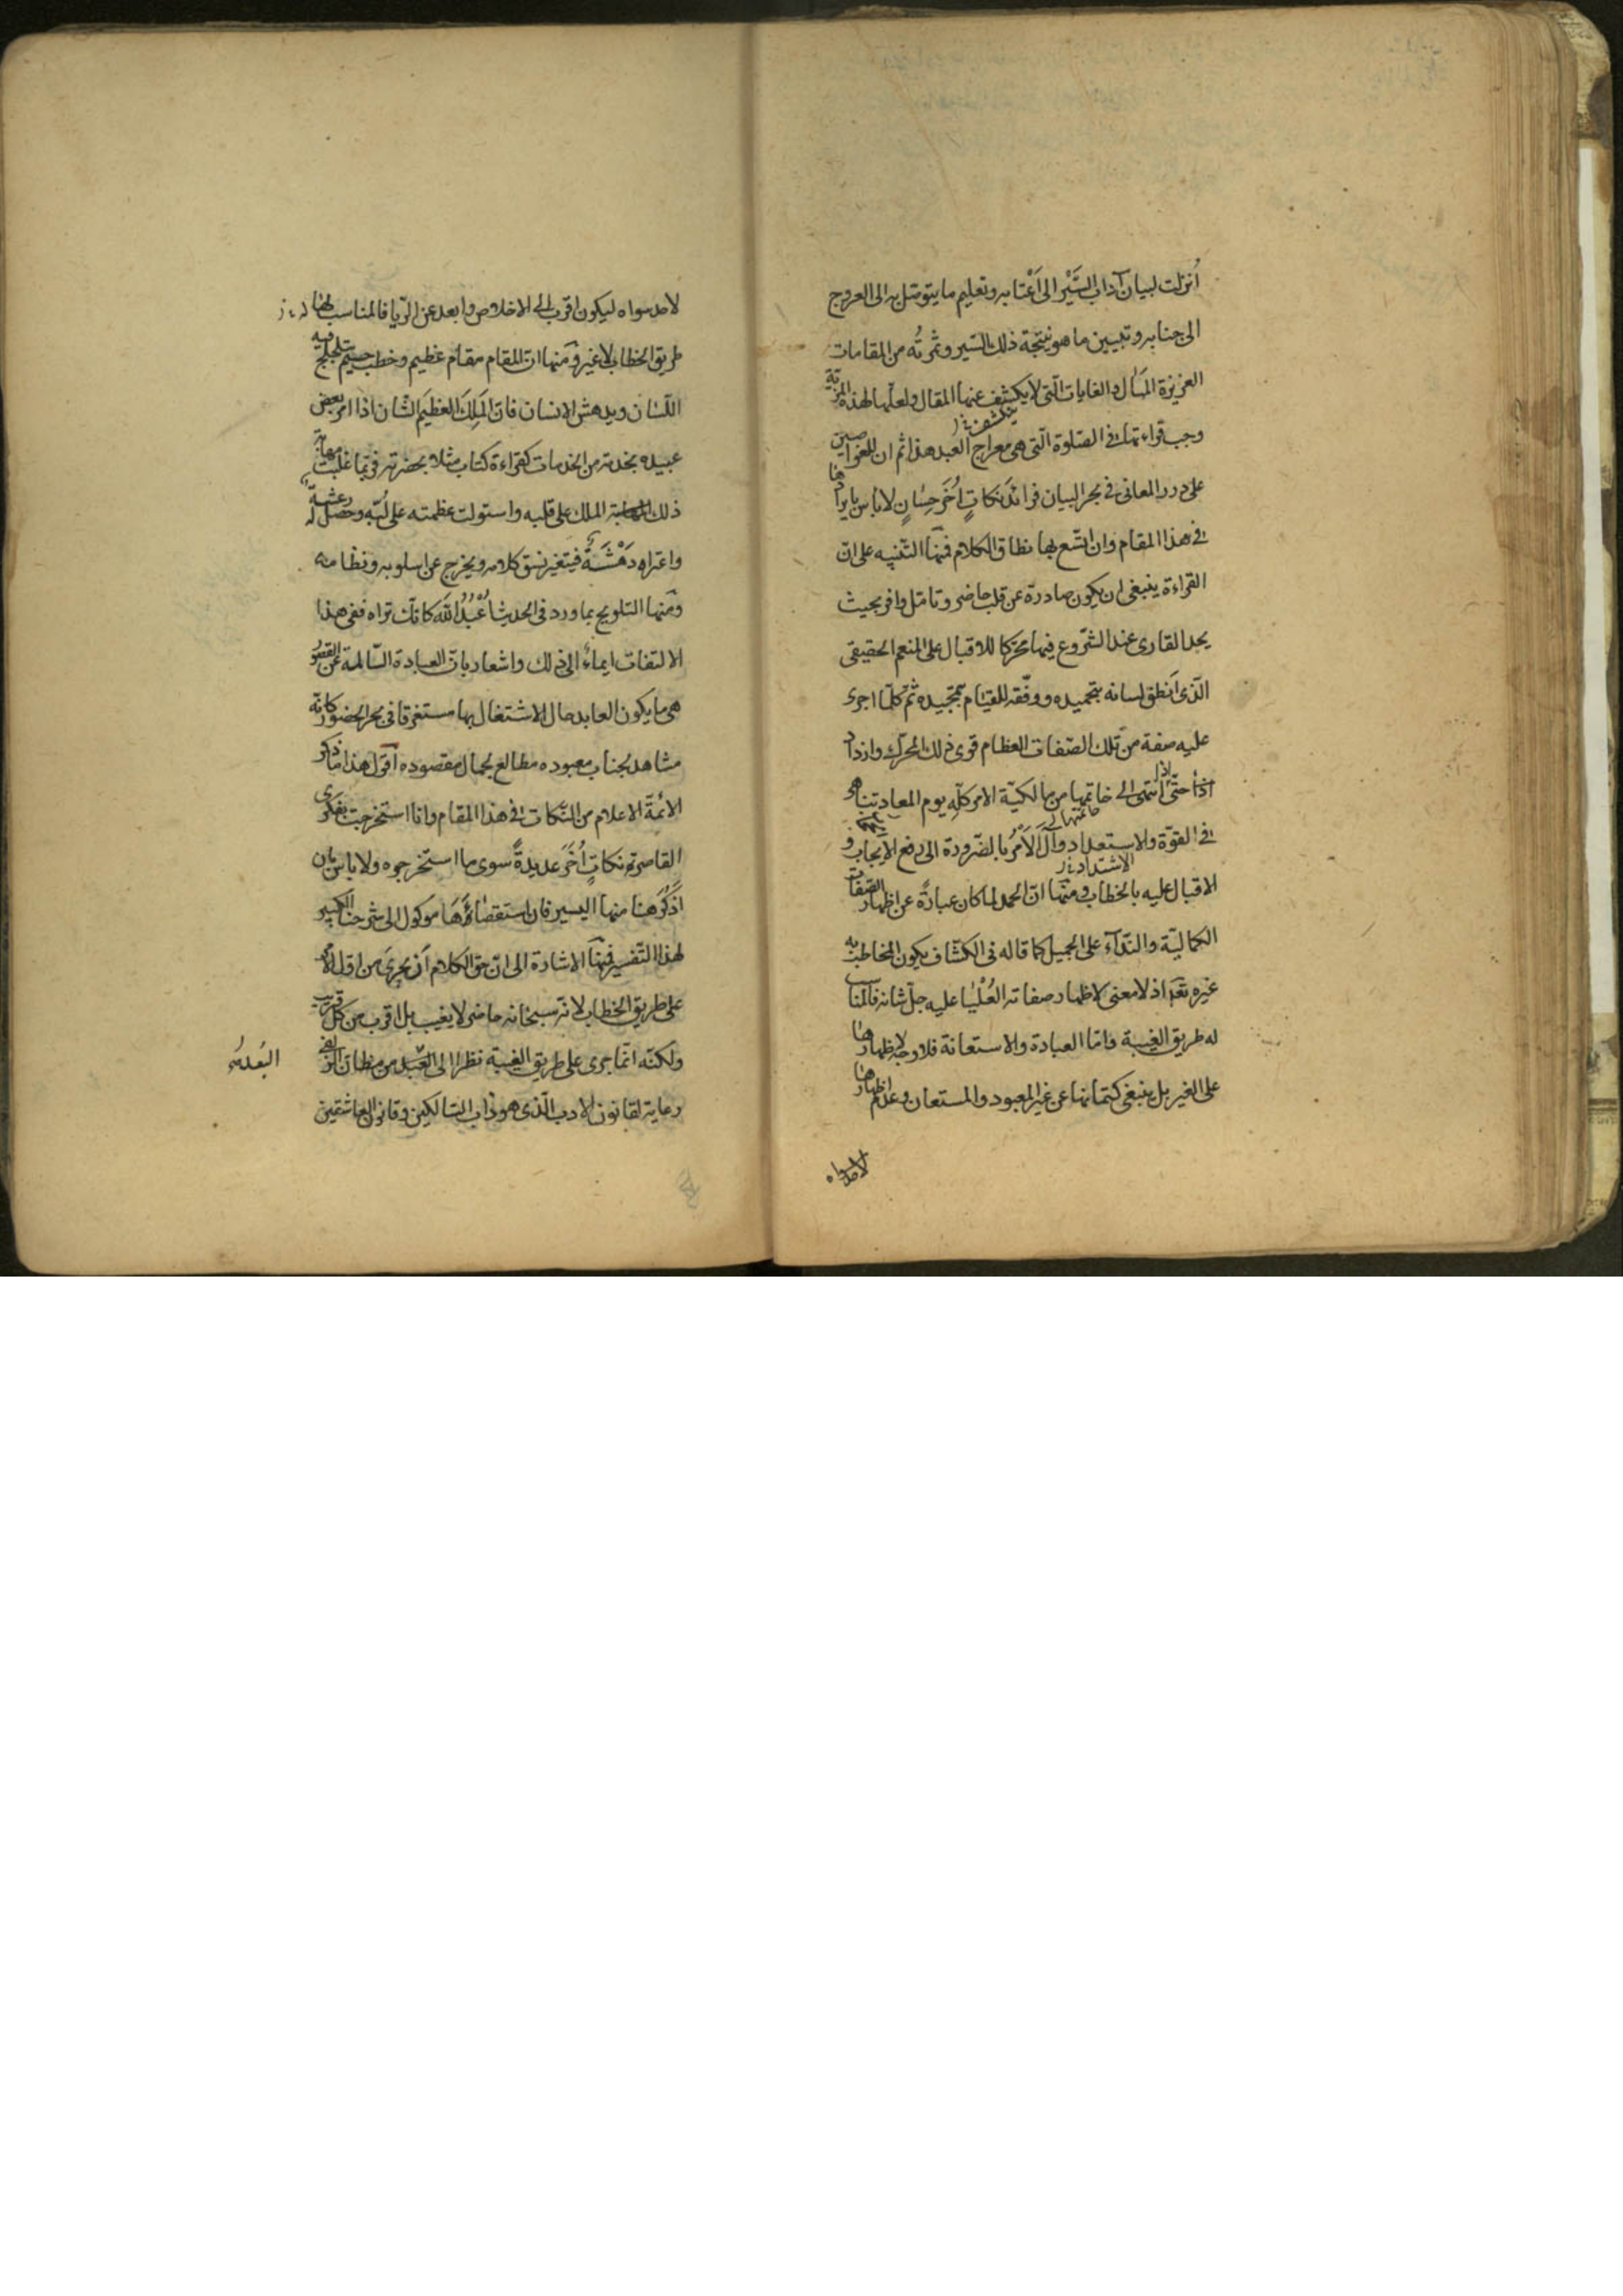 أُنزلت لبيان آداب السَّيْر الى اَعْتابه وتعليم ما يتوسّل به الى العروج
الى جنابه وتبيين ما هو نتيجة ذلك السّير وثمرتُه من المقامات
العزيزة المنال والغايات الّتى لا يكشف عنها المقال ولعلّها لهذه المزيّة
ينكشف
وجب قراءتها فى الصّلوة الّتى هى معراج العبد هذا ثم ان للغواصين
على درر المعانى فى بحر البيان فرائد نكاتٍ اُخَر حِسانٍ لا باس بايرادها
فى هذا المقام وان اتّسع بها نطاق الكلام فمنها التّنبيه على انّ
القراءة ينبغى ان يكون صادرة عن قلب حاضر وتامّل وافر بحيث
يجد القارى عند الشّروع فيها محرّكا للاقبال على المنعم الحقيقى
الّذى اَنطق لسانه بتحميده ووفّقه للقيام بتمجيده ثمّ كلّما اجرى
عليه صفة من تلك الصّفات العظام قوى ذلك المحرّك وازداد
حتّى اذا انتهى الى خاتمها من مالكيّة الامر كلّه يوم المعاد تناهى
خاتمتها
فى القوّة والاستعداد وآل الاَمْرُ بالضّرورة الى رفع الايجاب و
الاشتداد
الاقبال عليه بالخطاب ومنها انّ الحمد لما كان عبارةً عن اظهار الصّفات
الكماليّة والنّدآء على الجميل كما قاله فى الكشّاف يكون المخاطب به
غيره تعٓ اذ لا معنى لاظهار صفاته العُلْيٰا عليه جلّ شانه فالمناسب
له طريق الغيبة وامّا العبادة والاستعانة فلا وجه لاظهارها
على الغير بل ينبغى كتمانها عن غير المعبود والمستعان وعدم اظهارها
لاحد سواه
لاحد سواه ليكون اقرب الى الاخلاص وابعد عن الرّيا فالمناسب لها
طريق الخطاب لا غير ومنها انّ المقام مقام عظيم وخطب جسيم يتلجلج فيه
اللّسان ويدهش الانسان فان المَلِكَ العظيمَ الشّان اذا امر بعض
عبيده بخدمة من الخدمات كقراءة كتاب مثلا بحضرته فربّما غلبت مهابة
ذلك الملك على قلبه واستولت عظمته على لُبّه وحصل له رعشة
واعتراه دَهْشَةٌ فيتغير نسق كلامه ويخرج عن اسلوبه ونظامه
ومنها التلويح بما ورد فى الحديث اُعْبُدُ اللّٰهَ كانّك تراه ففى هذا
الالتفات ايماءٌ الى ذلك واشعار بان العبادة السّالمة عن القصور
هى ما يكون العابد حال الاشتغال بها مستغرقا فى بحر الحضور كانّه
مشاهد لجناب معبوده مطالع لجمال مقصوده اقول هذا ما ذكر
الائمّة الاعلام من النّكات فى هذا المقام وانا استخرجت بفكرى
القاصر نكاتٍ اُخَر عديدةً سوى ما استخرجوه ولا باس بان
اذكر هنا منها اليسير فان استقصاؤَهَا موكول الى شرحنا الكبير
لهذا التّفسير فمنها الاشارة الى انّ حق الكلام اَن يجرىَ من اوّل الامر
على طريق الخطاب لانّه سبحانه حاضر لا يغيب بل اقرب من كل قريب
ولكنّه انّما جرى على طريق الغيبة نظرا الى البُعْد من مظانّ الزّلفى
البُعد
رعاية لقانون الادب الّذى هو داب السّالكين وقانون العاشقين